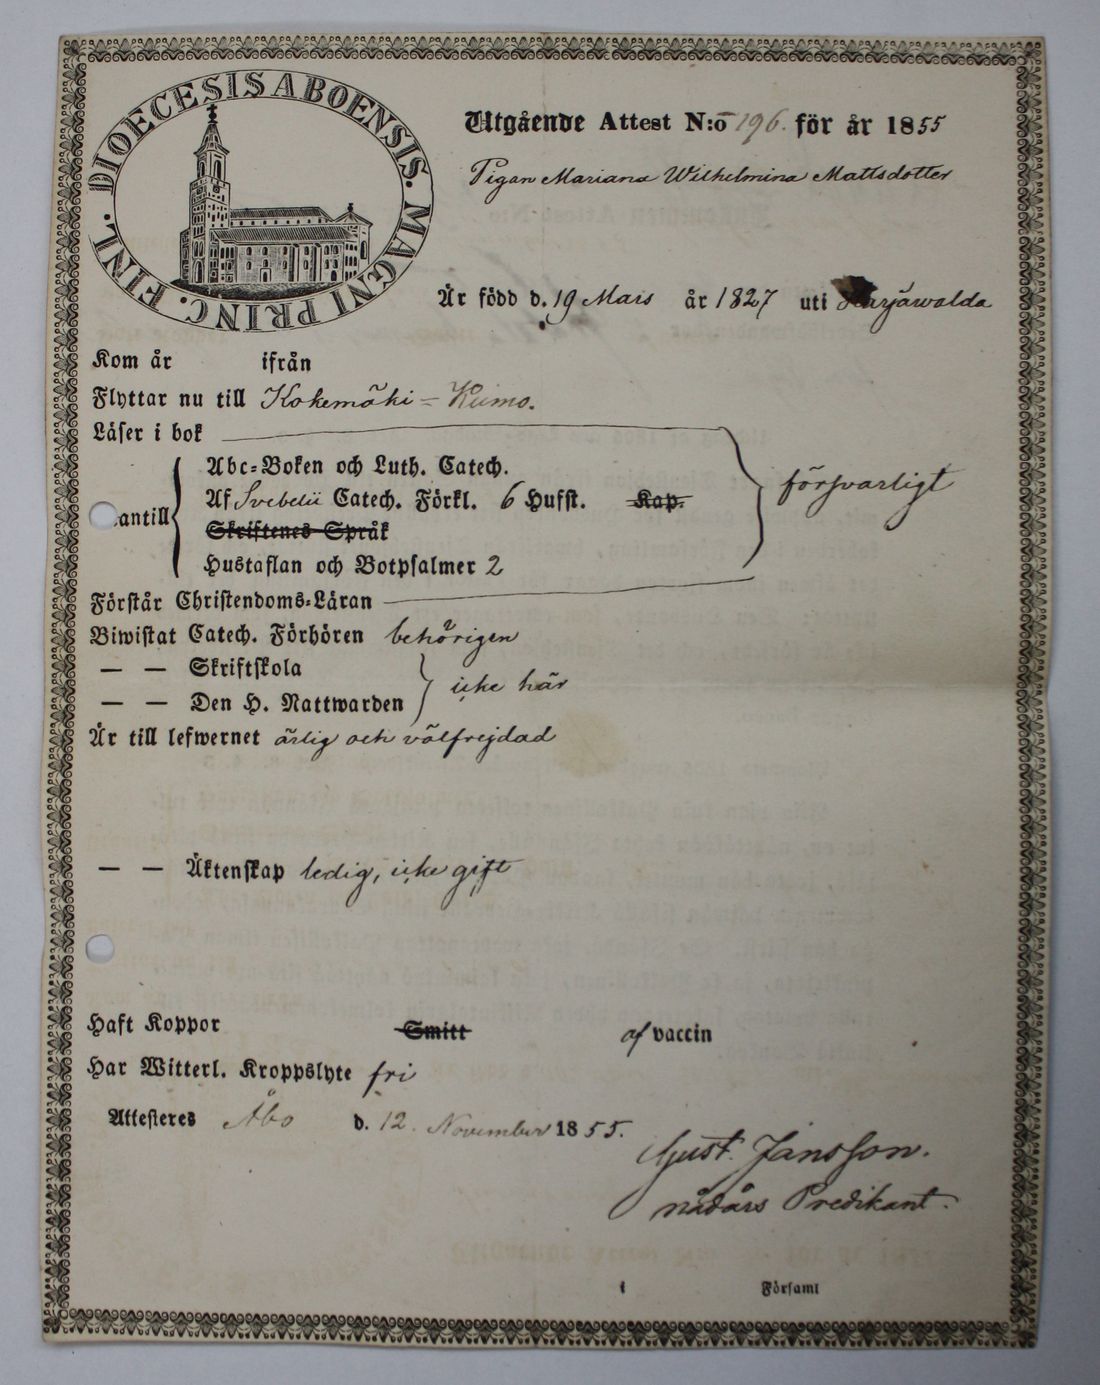 DIOECESIS ABOENSIS. MAGNI PRINC. FINL.
Utgående Attest N:o 196. för år 1855
Pigan Mariana Wilhelmina Mattsdotter
Är född d. 19 Mars år 1827 uti Harjawalda
Kom år ifrån
Flyttar nu till Kokemäki = Kumo.
Läser i bok
Abc=Boken och Luth. Catech.
Af Svebelii Catech. Förkl. 6 Hufst. Kap. försvarligt
antill
Skriftenes Språk
Hustaflan och Botpsalmer 2
Förstår Christendoms=Läran
Biwistat Catech. Förhören behörigen
— — Skriftskola
— — Den H. Nattwarden icke här
Är till lefwernet ärlig och välfrejdad
— — Äktenskap ledig, icke gift
Haft Koppor Smitt af vaccin
Har Witterl. Kroppslyte fri
Attesteres Åbo d. 12. November 1855.
Gust. Jansson.
nådårs Predikant.
i Församl